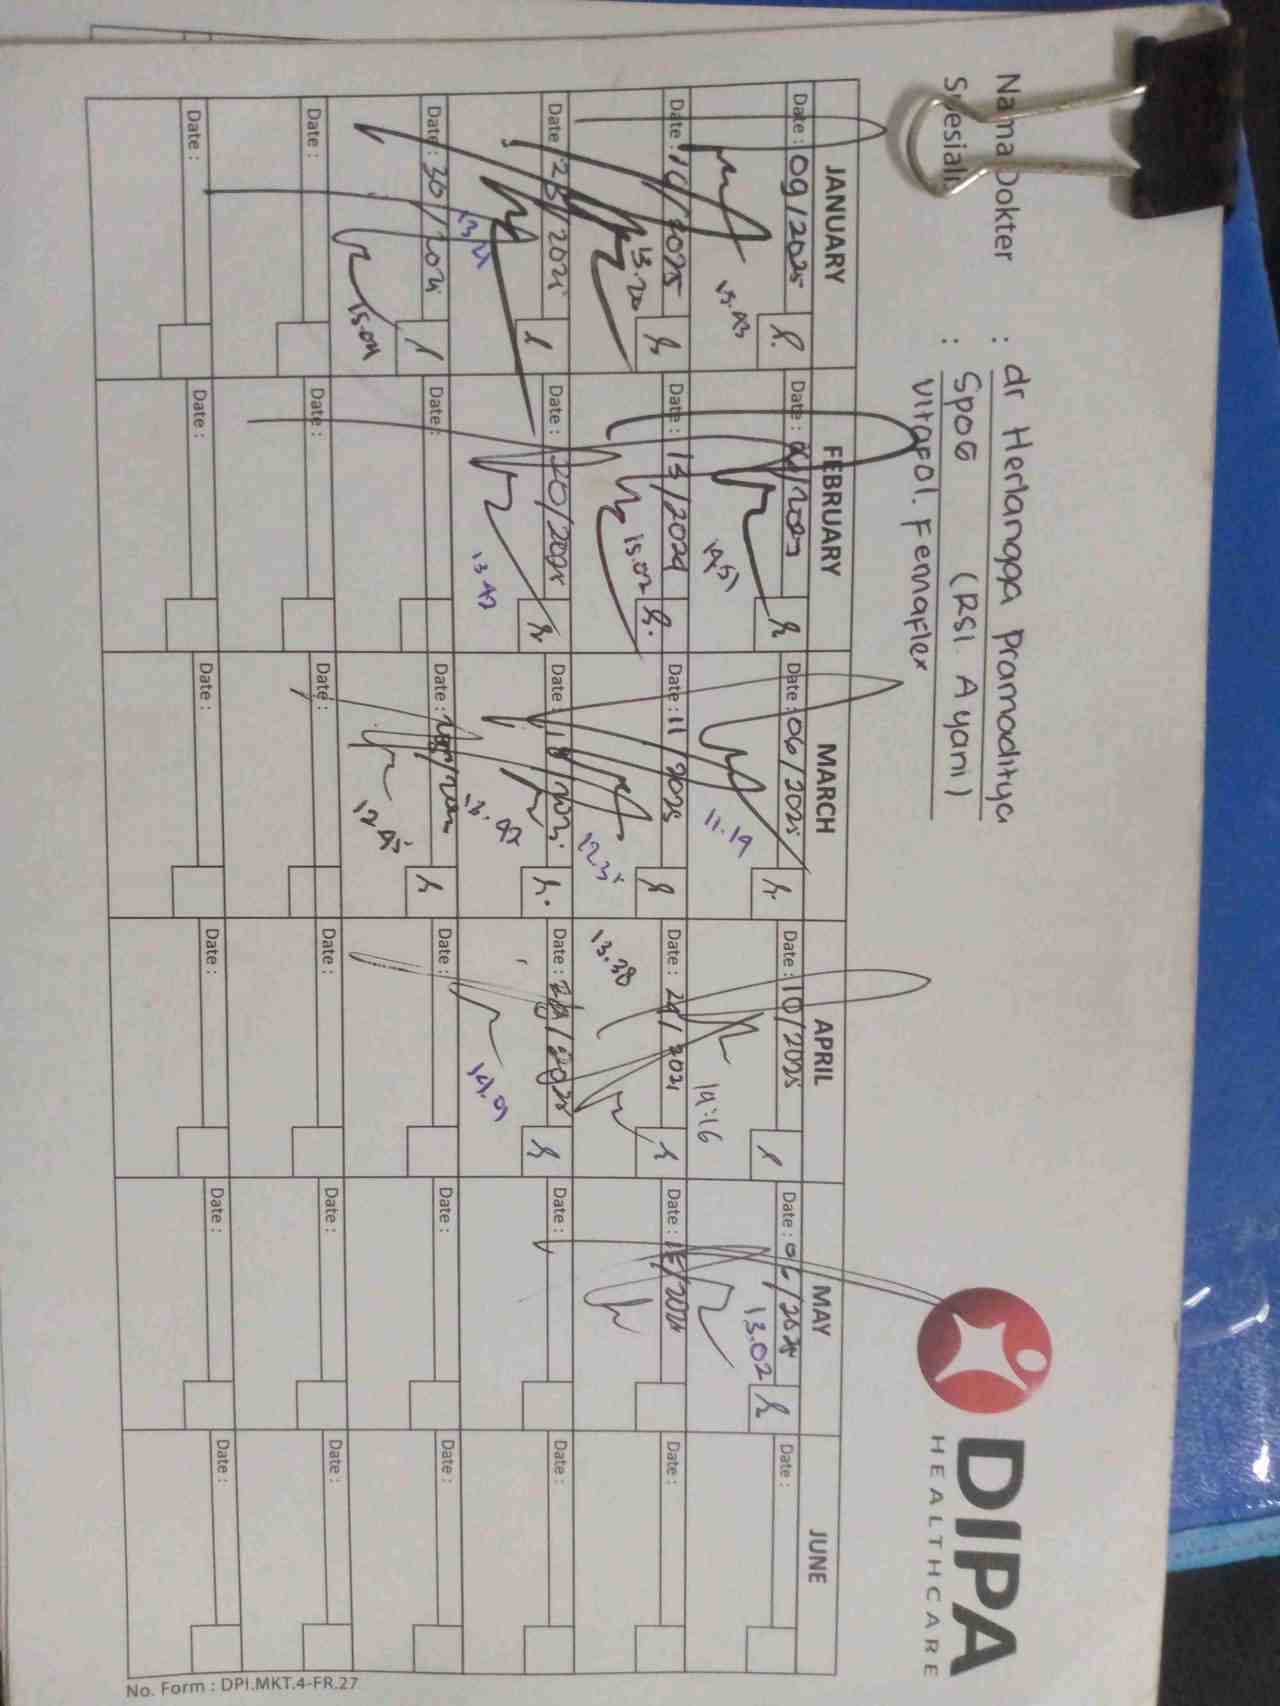 DIPA
HEALTHCARE
Nama Dokter : dr Herlangga Pramoditya
: SpOG (RSI. A yani)
Vitafol. Femaflex
JANUARY FEBRUARY MARCH APRIL MAY JUNE
Date : 09/2025 Date : Date : 06/2025 Date : 10/2025 Date : 06/2025 Date :
15.03 11.19 14:16 13.02
Date : 16/2025 Date : 13/2024 Date : 11/2025 Date : 24/2021 Date : 15/2021 Date :
13.20 15.02 12.35 13.38
Date : 23/2021 Date : 20/2025 Date : 18/2025 Date : Date : Date :
13.21 13.47 13.47 14.09
Date : 30/2021 Date : Date : Date : Date : Date :
15.04 12.45
Date : Date : Date : Date : Date : Date :
Date : Date : Date : Date : Date : Date :
No. Form : DPI.MKT.4-FR.27